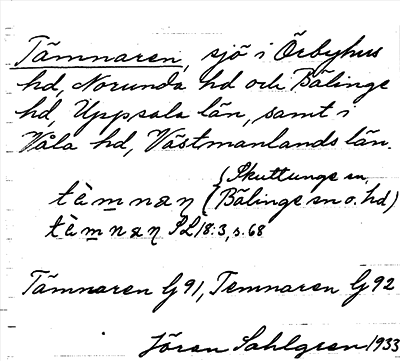 Tämnaren, sjö i Örbyhus
hd, Norunda hd och Bälinge
hd, Uppsala län, samt i
Våla hd, Västmanlands län.
(Skuttunge sn,
tè̀mnaŋ (Bälinge sn o. hd)
SL 18:3, s. 68
Tämnaren G 91, Temnaren G 92
Jöran Sahlgren 1933